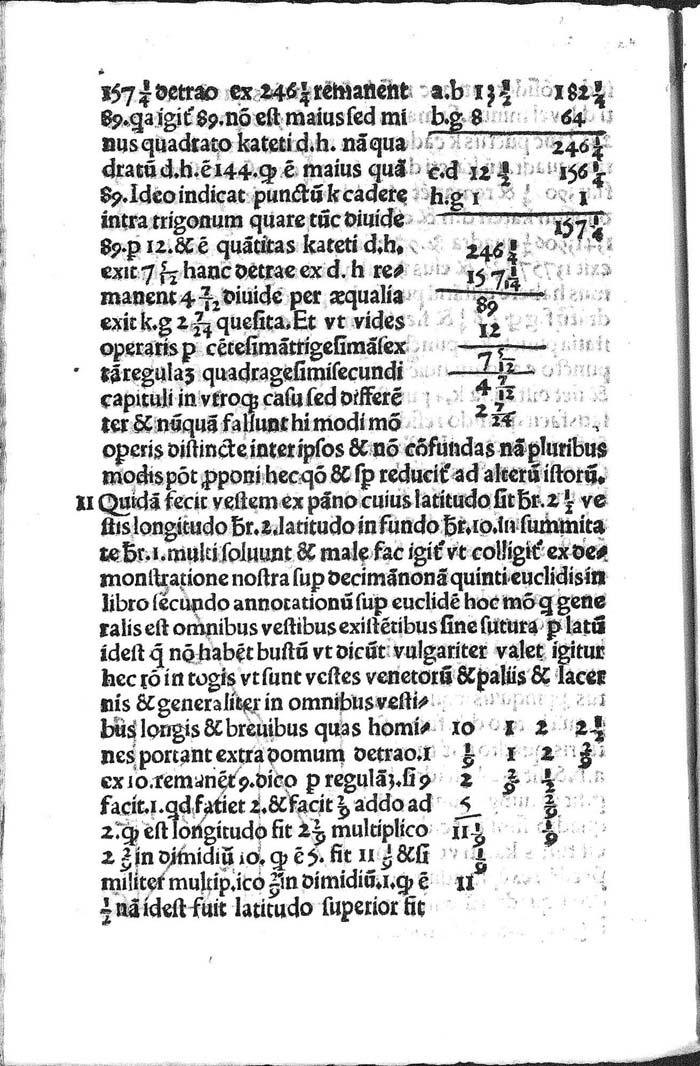 157 1/4 detrao ex 246 1/4 remanent
89. q̃a igit᷑ 89. nõ est maius sed mi
nus quadrato kateti d.h. nã qua
dratũ d.h. ẽ 144. qđ ẽ maius quã
89. Ideo indicat punctũ k cadere
intra trigonum quare tũc diuide
89. ꝑ 12. & ẽ quãtitas kateti d.h.
exit 7 5/12 hanc detrae ex d. h re-
manent 4 7/12 diuide per æqualia
exit k.g 2 7/24 quesita. Et vt vides
operaris ꝑ cẽtesimãtrigesimãsex
tã regulaʒ quadragesimisecundi
capituli in vtroqʒ casu sed differẽ
ter & nũquã fallunt hi modi mõ
operis distincte inter ipsos & nõ cõfundas nã pluribus
modis põt ꝓponi hec q̃o & sꝑ reducit᷑ ad alterũ istorũ.
11 Quidã fecit vestem ex pãno cuius latitudo sit b̃r. 2 1/2 ve
stis longitudo b̃r. 2. latitudo in fundo b̃r. 10. in summita
te b̃r. 1. multi soluunt & male fac igit᷑ vt colligit᷑ ex de-
monstratione nostra suꝑ decimãnonã quinti euclidis in
libro secundo annotationũ suꝑ euclidẽ hoc mõ q̃ gene
ralis est omnibus vestibus existẽtibus sine sutura ꝑ latũ
idest q̃ nõ habẽt bustũ vt dicũt vulgariter valet igitur
hec rõ in togis vt sunt vestes venetorũ & paliis & lacer
nis & generaliter in omnibus vesti-
bus longis & breuibus quas homi-
nes portant extra domum detrao. 1
ex 10. remanẽt 9. dico ꝑ regulãʒ. si 9
facit. 1. qđ fatiet 2. & facit 2/9 addo ad
2. qđ est longitudo fit 2 2/9 multiplico
2 2/9 in dimidiũ 10. qđ ẽ 5. fit 11 1/9 & si
militer multip.ico 2/9 in dimidiũ. 1. qđ ẽ
1/2 nã idest fuit latitudo superior fit
a.b 13 1/2 182 1/4
b.g 8 64
246 1/4
c.d 12 1/2 156 1/4
h.g 1 1
157 1/4
246 1/4
157 1/14
89
12
7 5/12
4 7/12
2 7/24
10 1 2 2 1/2
1/9 1 2 2/9
2 2/9 1/2
5 2/9
11 1/9 1/9
1/9
11